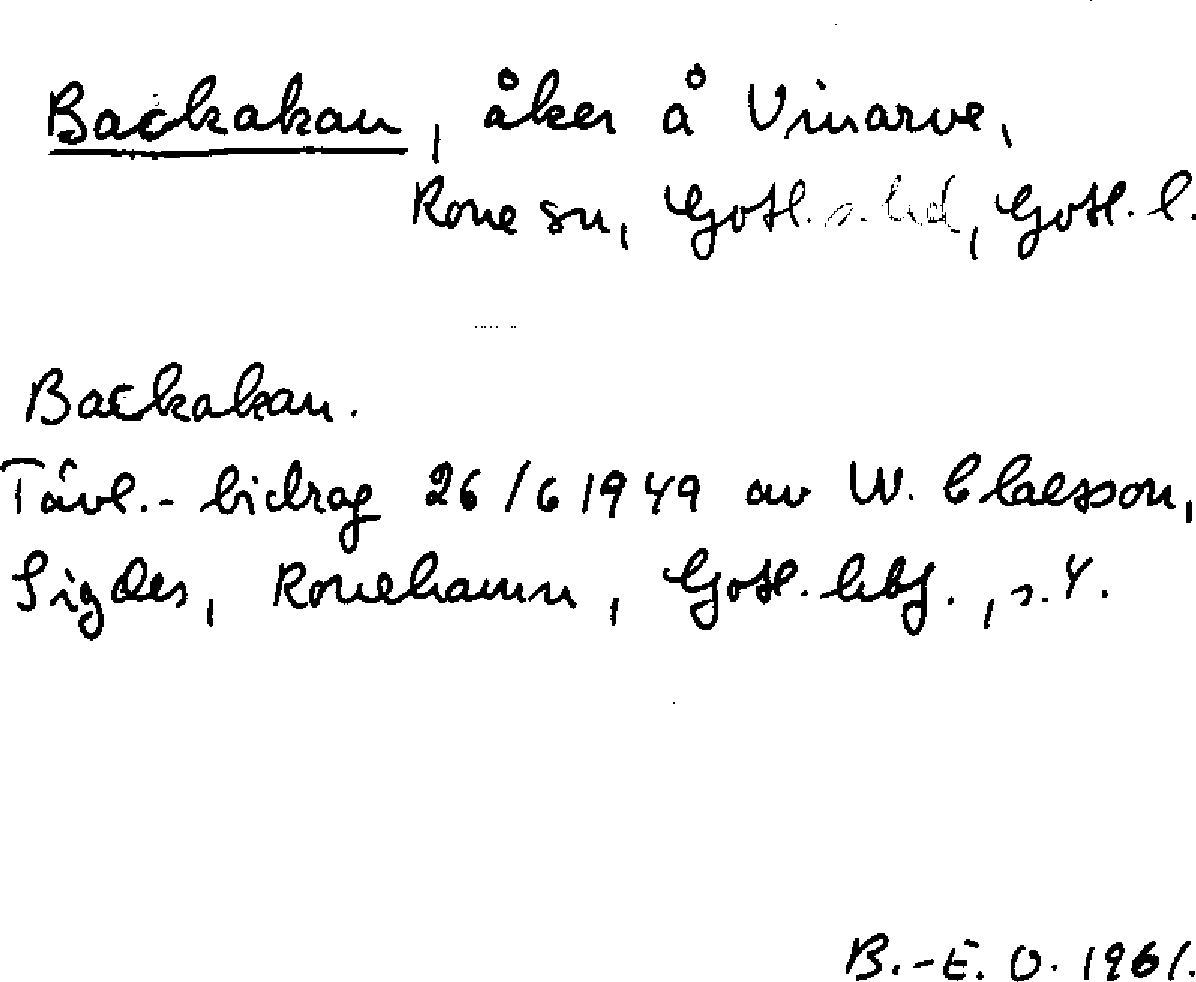 Backakan, åker å Vinarve,
Rone sn, Gotl. s. hd, Gotl. l.
Backakan.
Tävl.-bidrag 26/6 1949 av W. Claesson,
Sigdes, Ronehamn, Gotl. hbf., s. 4.
B.-E. O. 1961.